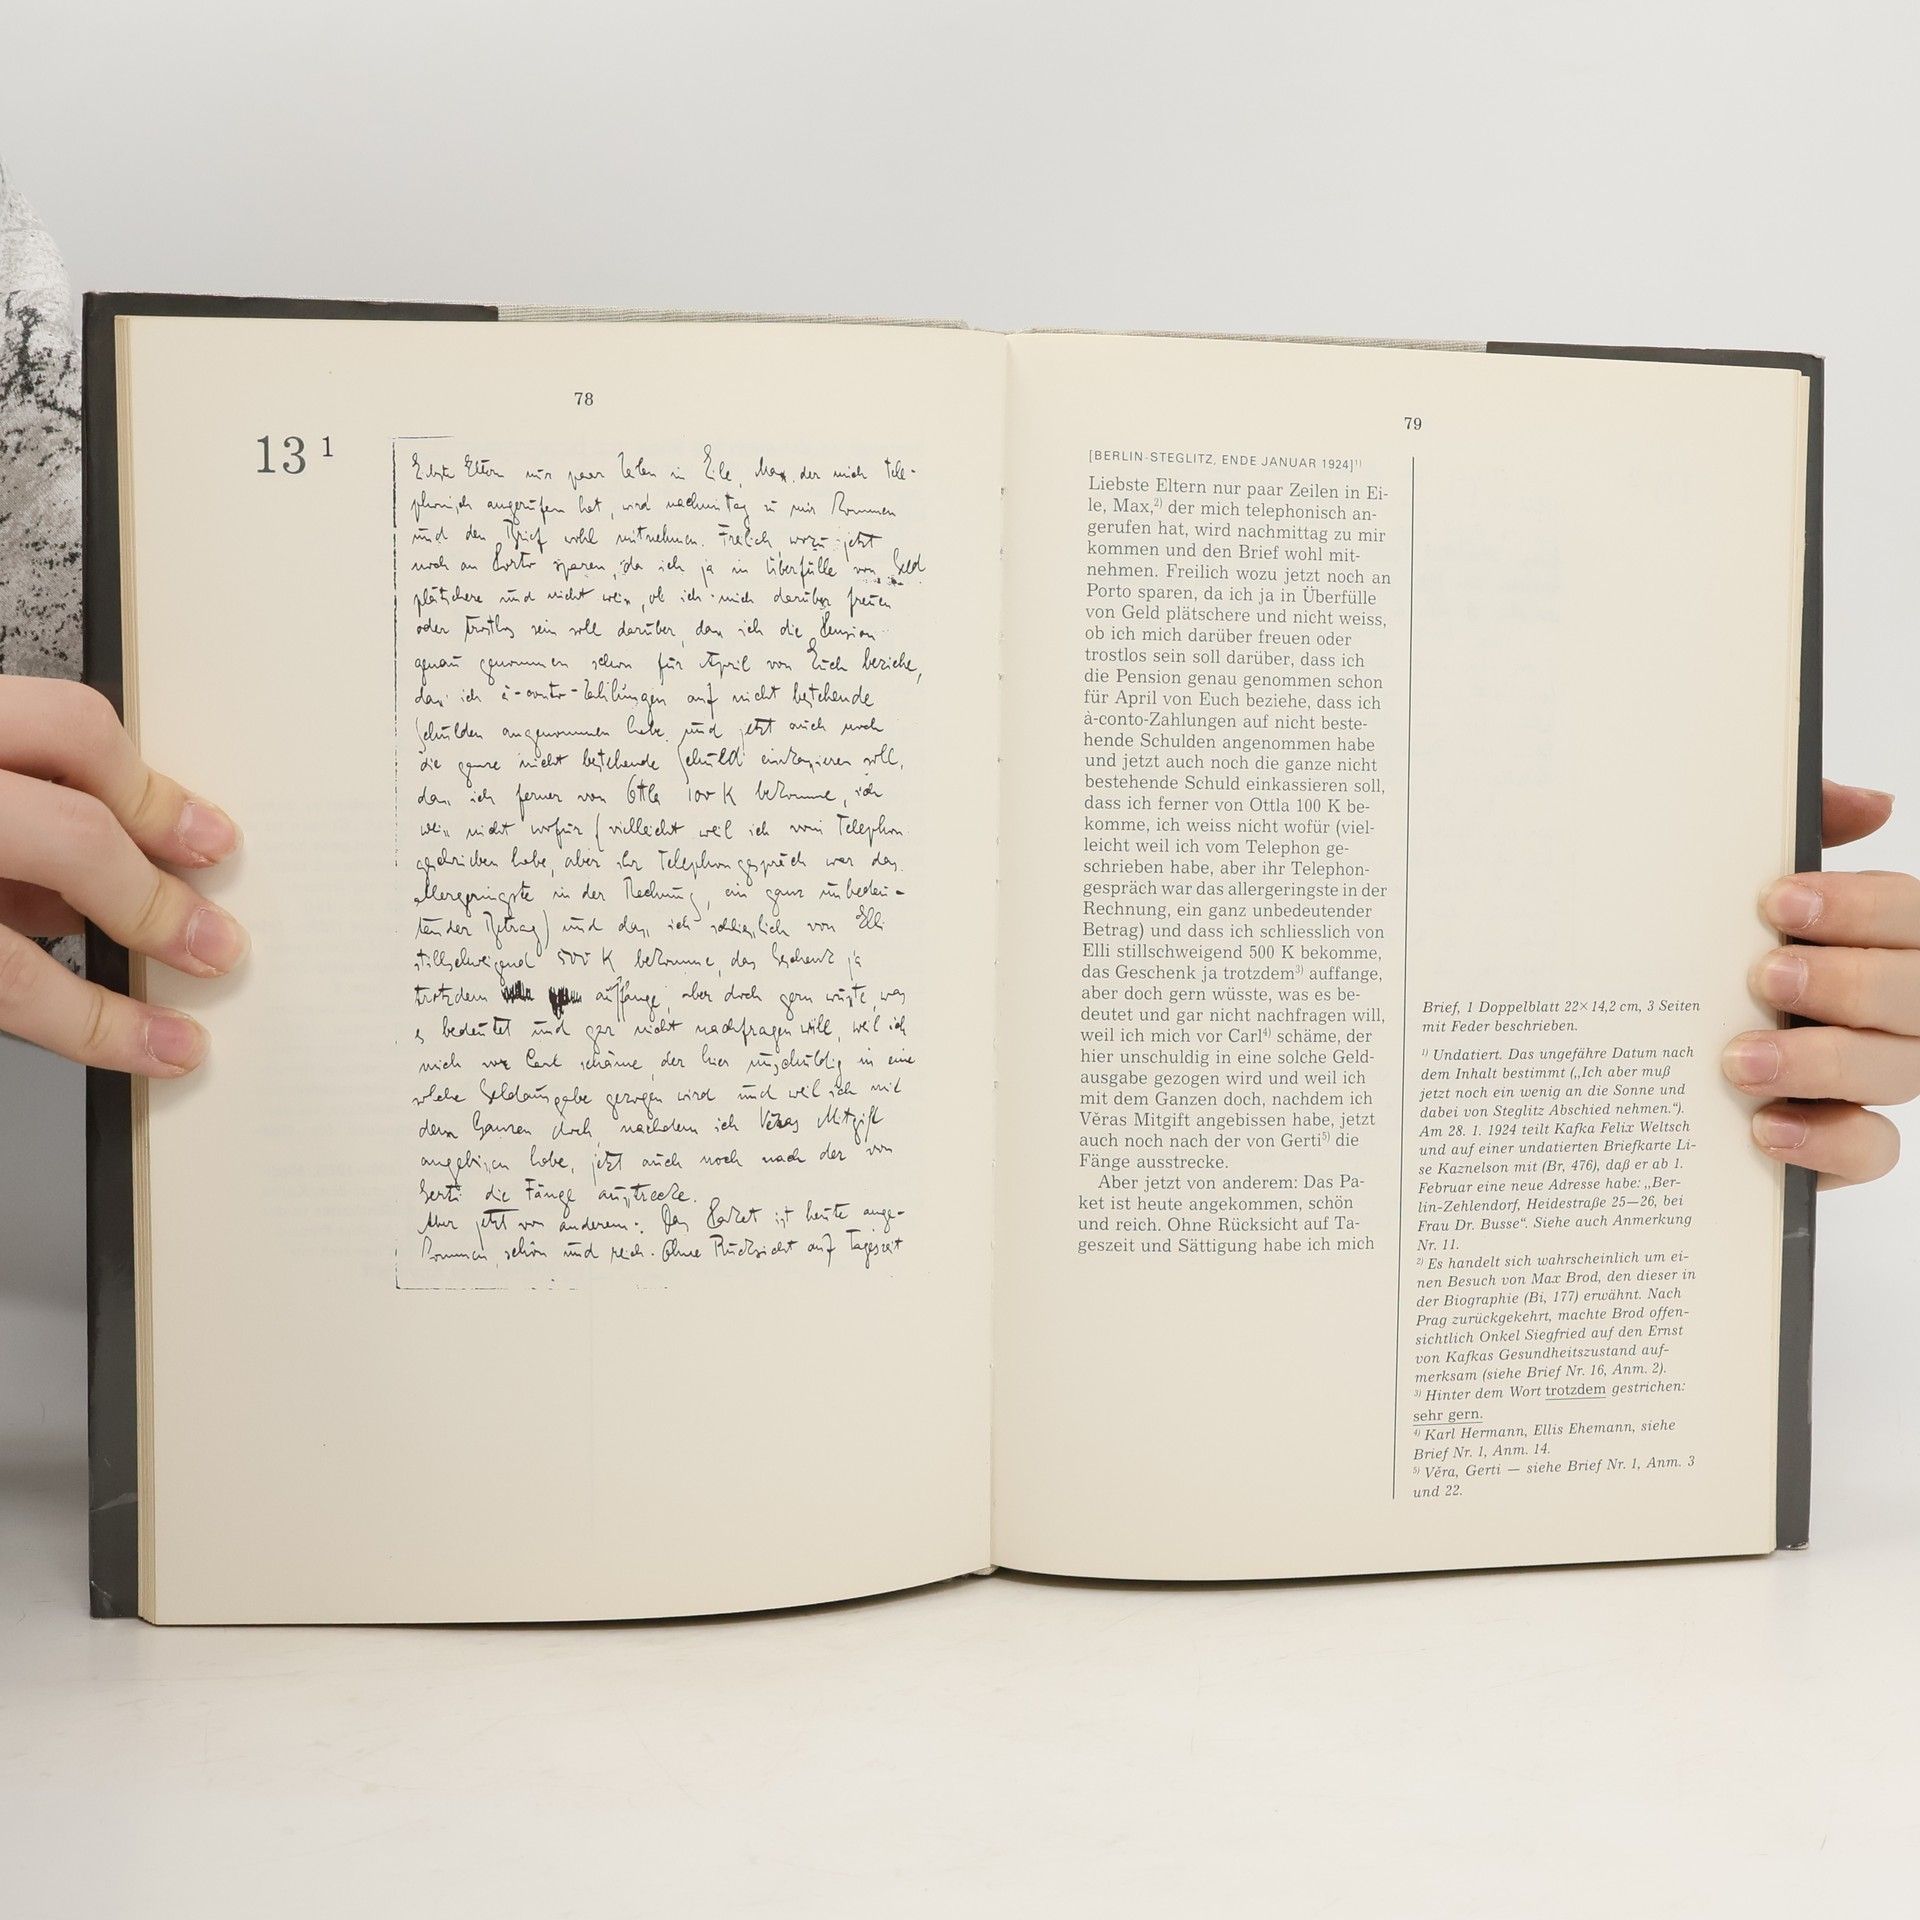 78
13 1
Liebste Eltern nur paar Zeilen in Eile, Max, der mich tele-
phonisch angerufen hat, wird nachmittag zu mir kommen
und den Brief wohl mitnehmen. Freilich wozu jetzt
noch an Porto sparen, da ich ja in Überfülle von Geld
plätschere und nicht weiss, ob ich mich darüber freuen
oder trostlos sein soll darüber, dass ich die Pension
genau genommen schon für April von Euch beziehe,
dass ich à-conto-Zahlungen auf nicht bestehende
Schulden angenommen habe und jetzt auch noch
die ganze nicht bestehende Schuld einkassieren soll,
dass ich ferner von Ottla 100 K bekomme, ich
weiss nicht wofür (vielleicht weil ich vom Telephon
geschrieben habe, aber ihr Telephongespräch war das
allergeringste in der Rechnung, ein ganz unbedeu-
tender Betrag) und dass ich schliesslich von Elli
stillschweigend 500 K bekomme, das Geschenk ja
trotzdem auffange, aber doch gern wüsste, was
es bedeutet und gar nicht nachfragen will, weil ich
mich vor Carl schäme, der hier unschuldig in eine
solche Geldausgabe gezogen wird und weil ich mit
dem Ganzen doch, nachdem ich Věras Mitgift
angebissen habe, jetzt auch noch nach der von
Gerti die Fänge ausstrecke.
Aber jetzt von anderem: Das Paket ist heute ange-
kommen, schön und reich. Ohne Rücksicht auf Tageszeit
79
[BERLIN-STEGLITZ, ENDE JANUAR 1924]1)
Liebste Eltern nur paar Zeilen in Ei-
le, Max,2) der mich telephonisch an-
gerufen hat, wird nachmittag zu mir
kommen und den Brief wohl mit-
nehmen. Freilich wozu jetzt noch an
Porto sparen, da ich ja in Überfülle
von Geld plätschere und nicht weiss,
ob ich mich darüber freuen oder
trostlos sein soll darüber, dass ich
die Pension genau genommen schon
für April von Euch beziehe, dass ich
à-conto-Zahlungen auf nicht beste-
hende Schulden angenommen habe
und jetzt auch noch die ganze nicht
bestehende Schuld einkassieren soll,
dass ich ferner von Ottla 100 K be-
komme, ich weiss nicht wofür (viel-
leicht weil ich vom Telephon ge-
schrieben habe, aber ihr Telephon-
gespräch war das allergeringste in der
Rechnung, ein ganz unbedeutender
Betrag) und dass ich schliesslich von
Elli stillschweigend 500 K bekomme,
das Geschenk ja trotzdem3) auffange,
aber doch gern wüsste, was es be-
deutet und gar nicht nachfragen will,
weil ich mich vor Carl4) schäme, der
hier unschuldig in eine solche Geld-
ausgabe gezogen wird und weil ich
mit dem Ganzen doch, nachdem ich
Věras Mitgift angebissen habe, jetzt
auch noch nach der von Gerti5) die
Fänge ausstrecke.
Aber jetzt von anderem: Das Pa-
ket ist heute angekommen, schön
und reich. Ohne Rücksicht auf Ta-
geszeit und Sättigung habe ich mich
Brief, 1 Doppelblatt 22×14,2 cm, 3 Seiten
mit Feder beschrieben.
1) Undatiert. Das ungefähre Datum nach
dem Inhalt bestimmt („Ich aber muß
jetzt noch ein wenig an die Sonne und
dabei von Steglitz Abschied nehmen.“).
Am 28. 1. 1924 teilt Kafka Felix Weltsch
und auf einer undatierten Briefkarte Li-
se Kaznelson mit (Br, 476), daß er ab 1.
Februar eine neue Adresse habe: „Ber-
lin-Zehlendorf, Heidestraße 25—26, bei
Frau Dr. Busse“. Siehe auch Anmerkung
Nr. 11.
2) Es handelt sich wahrscheinlich um ei-
nen Besuch von Max Brod, den dieser in
der Biographie (Bi, 177) erwähnt. Nach
Prag zurückgekehrt, machte Brod offen-
sichtlich Onkel Siegfried auf den Ernst
von Kafkas Gesundheitszustand auf-
merksam (siehe Brief Nr. 16, Anm. 2).
3) Hinter dem Wort trotzdem gestrichen:
sehr gern.
4) Karl Hermann, Ellis Ehemann, siehe
Brief Nr. 1, Anm. 14.
5) Věra, Gerti — siehe Brief Nr. 1, Anm. 3
und 22.